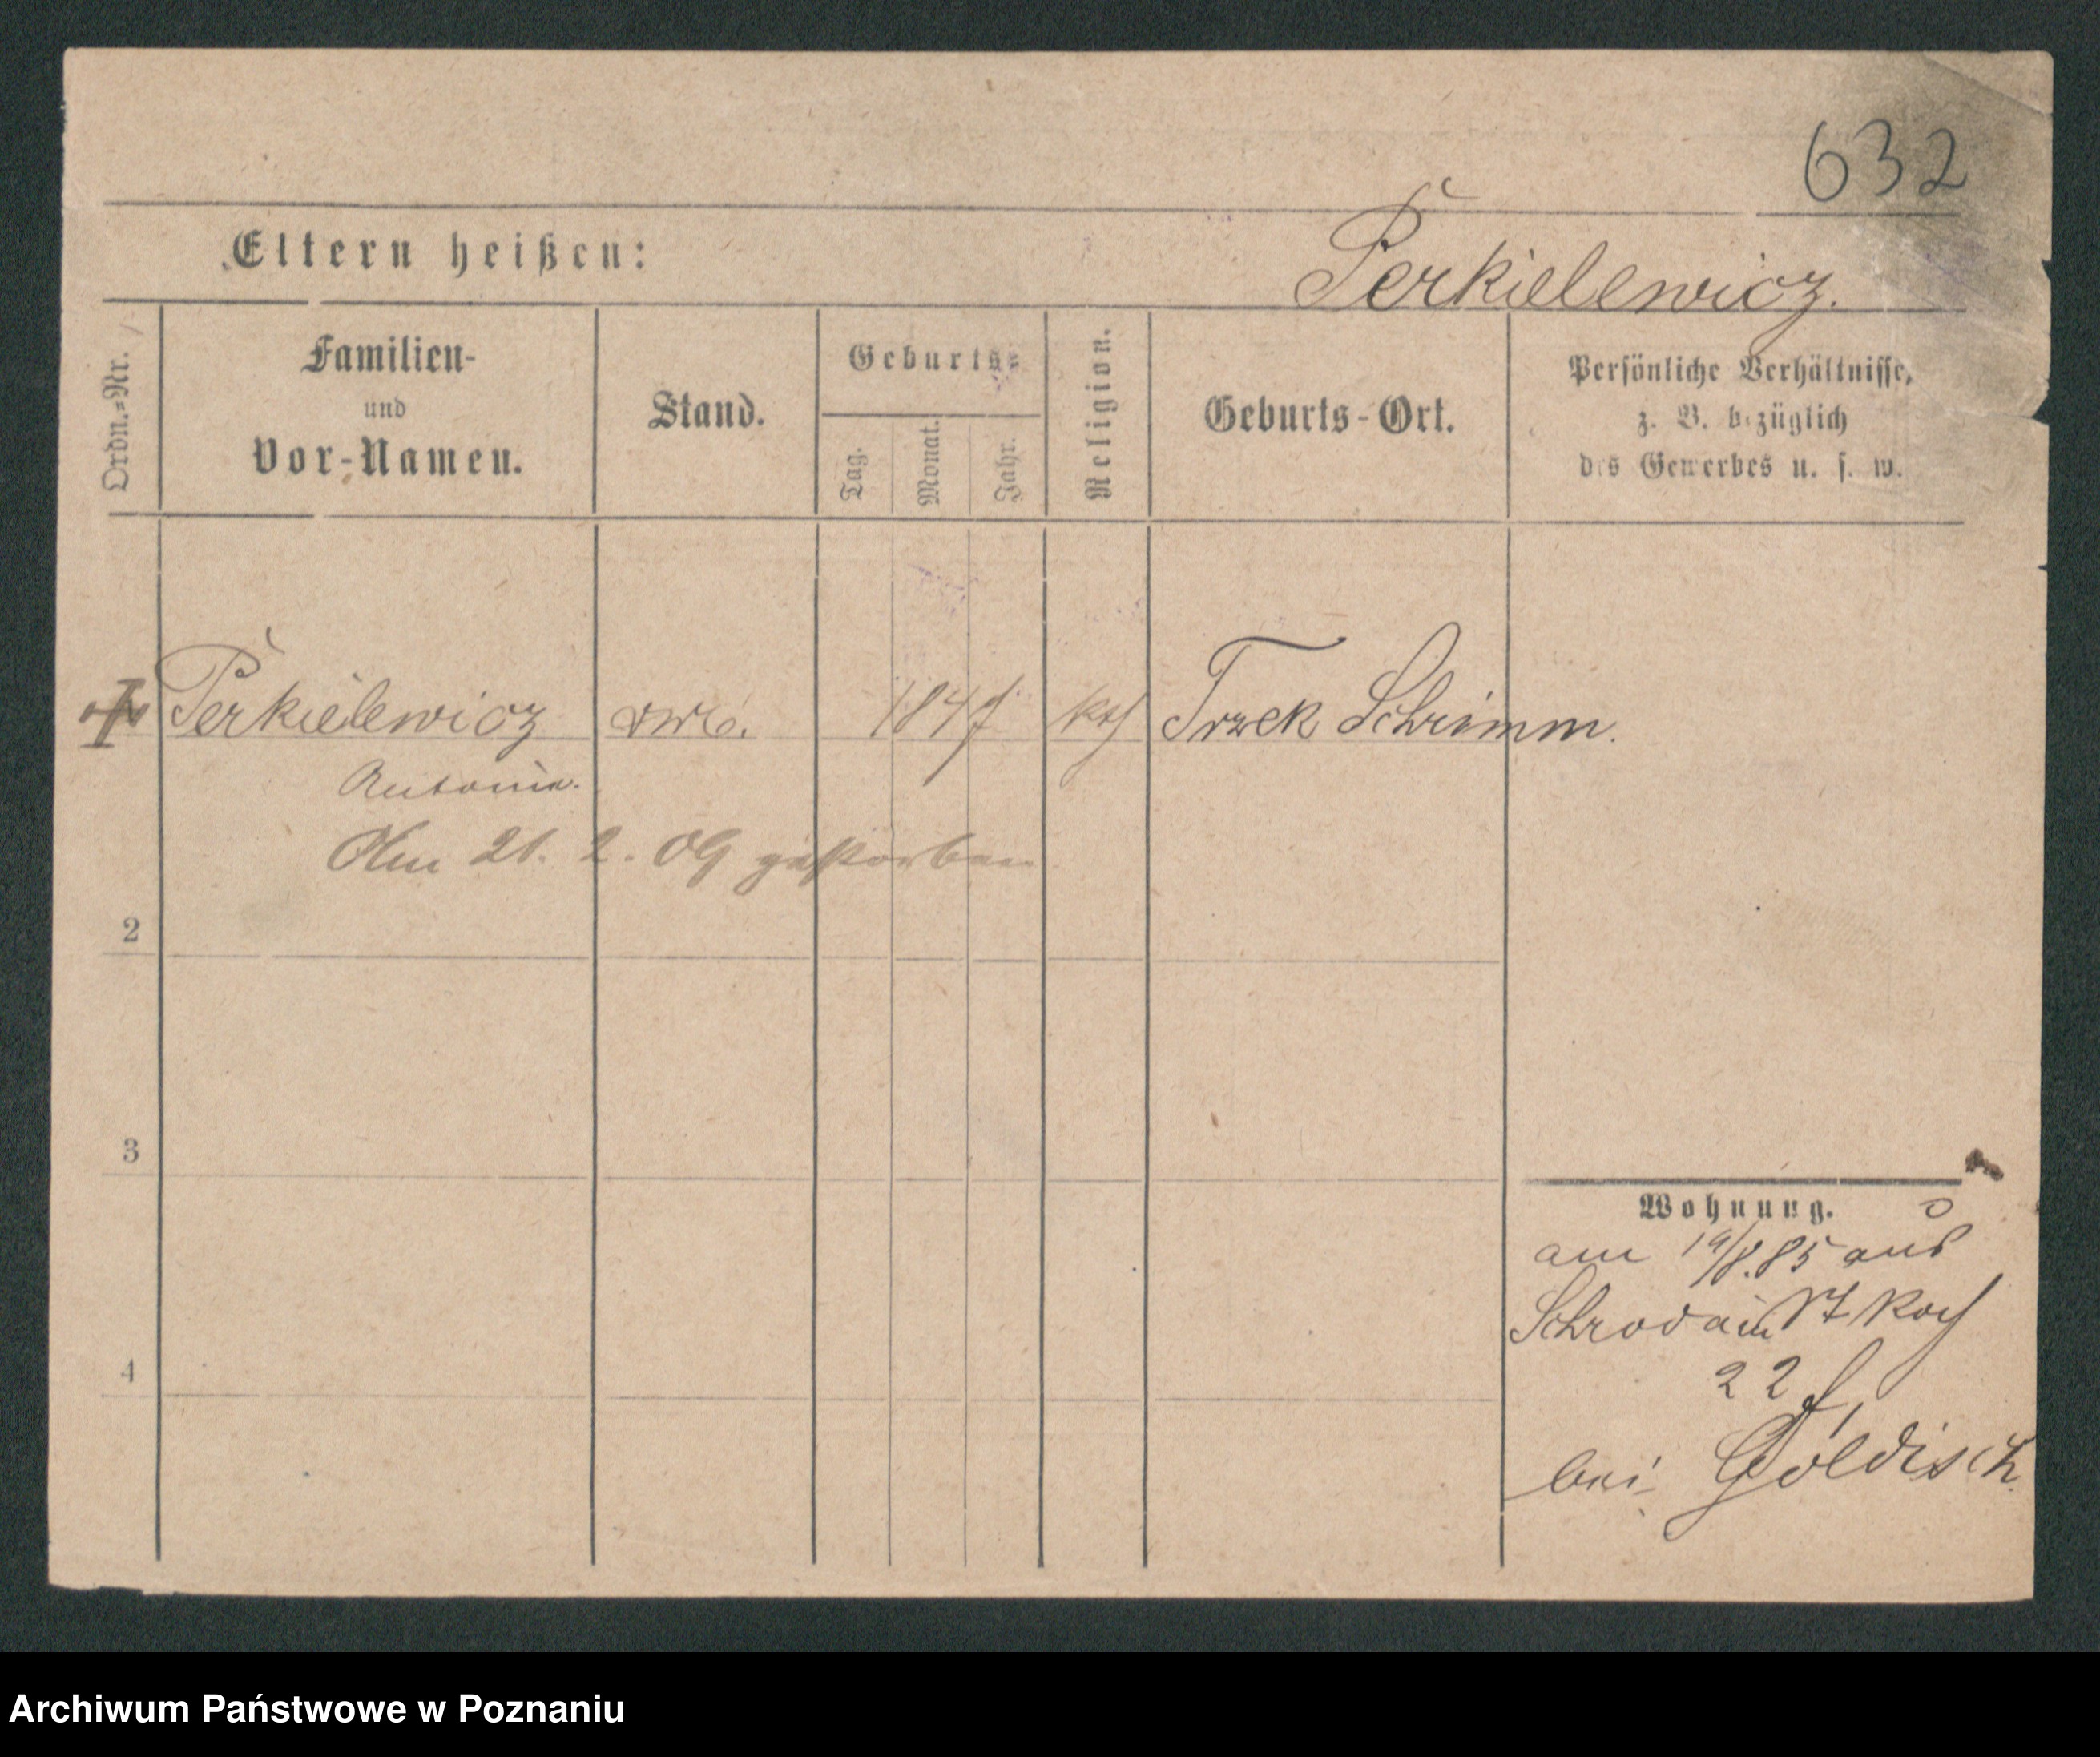 632
Eltern heißen:
Perkielewicz.
Ordn.-Nr.
Familien-
und
Vor-Namen.
Stand.
Geburts-
Tag.
Monat.
Jahr.
Religion.
Geburts-Ort.
Persönliche Verhältnisse,
z. B. bezüglich
des Gewerbes u. s. w.
Perkielewicz
1847
kth
Trzek Schrimm.
Antonie.
Am 21. 2. 09 gestorben
2
3
4
Wohnung.
am 19/8.85 aus
Schroda in
22
bei Goldisch
Archiwum Państwowe w Poznaniu